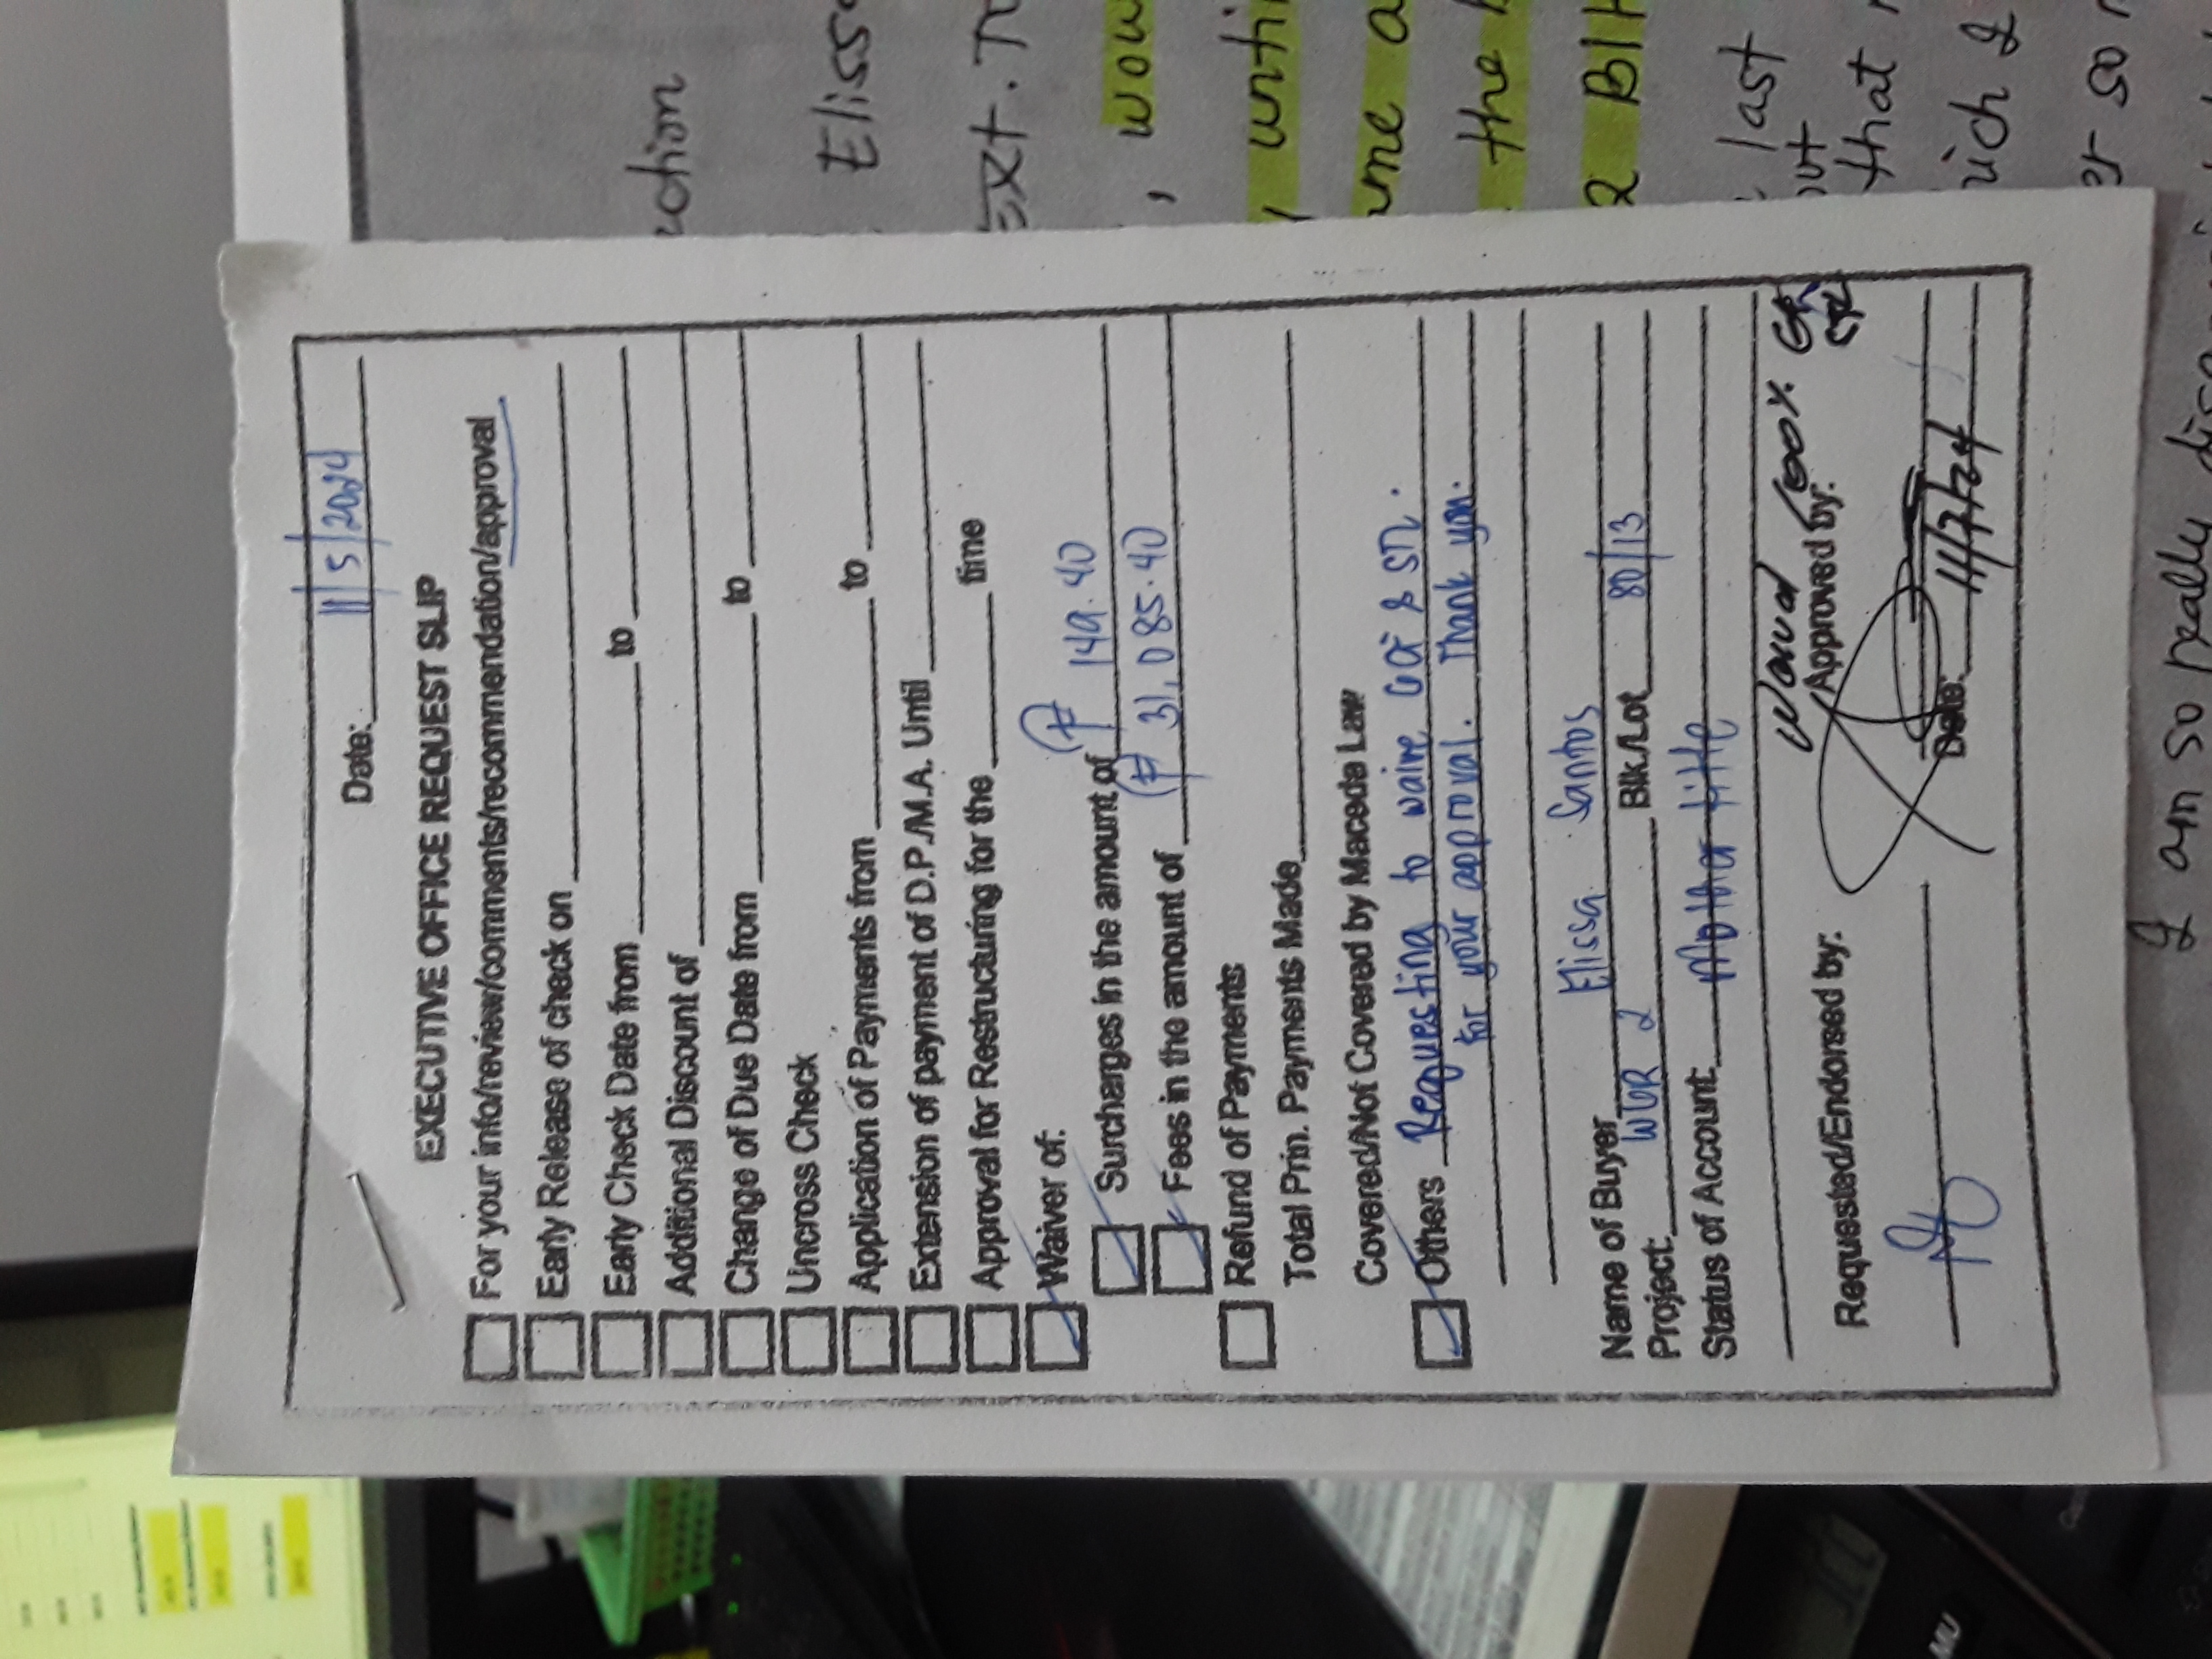 Date: 11/5/2024
EXECUTIVE OFFICE REQUEST SLIP
For your info/review/comments/recommendation/approval
Early Release of check on
Early Check Date from to
Additional Discount of
Change of Due Date from to
Uncross Check
Application of Payments from to
Extension of payment of D.P./M.A. Until
Approval for Restructuring for the time
Waiver of:
Surcharges in the amount of ₱ 149.40
Fees in the amount of ₱ 31,085.40
Refund of Payments
Total Prin. Payments Made
Covered/Not Covered by Maceda Law
Others Requesting to waive & .
for your approval. Thank you.
Name of Buyer Elissa Santos
Project: WGR 2 Blk./Lot 80/13
Status of Account: Mother title
Waived 100%
Requested/Endorsed by: Approved by:
Date: 11/7/24
ction
Eliss
Ext.
, wou
, unti
ame a
the
2 Bl
last
out
that
hich I
er so
I am so really
MU